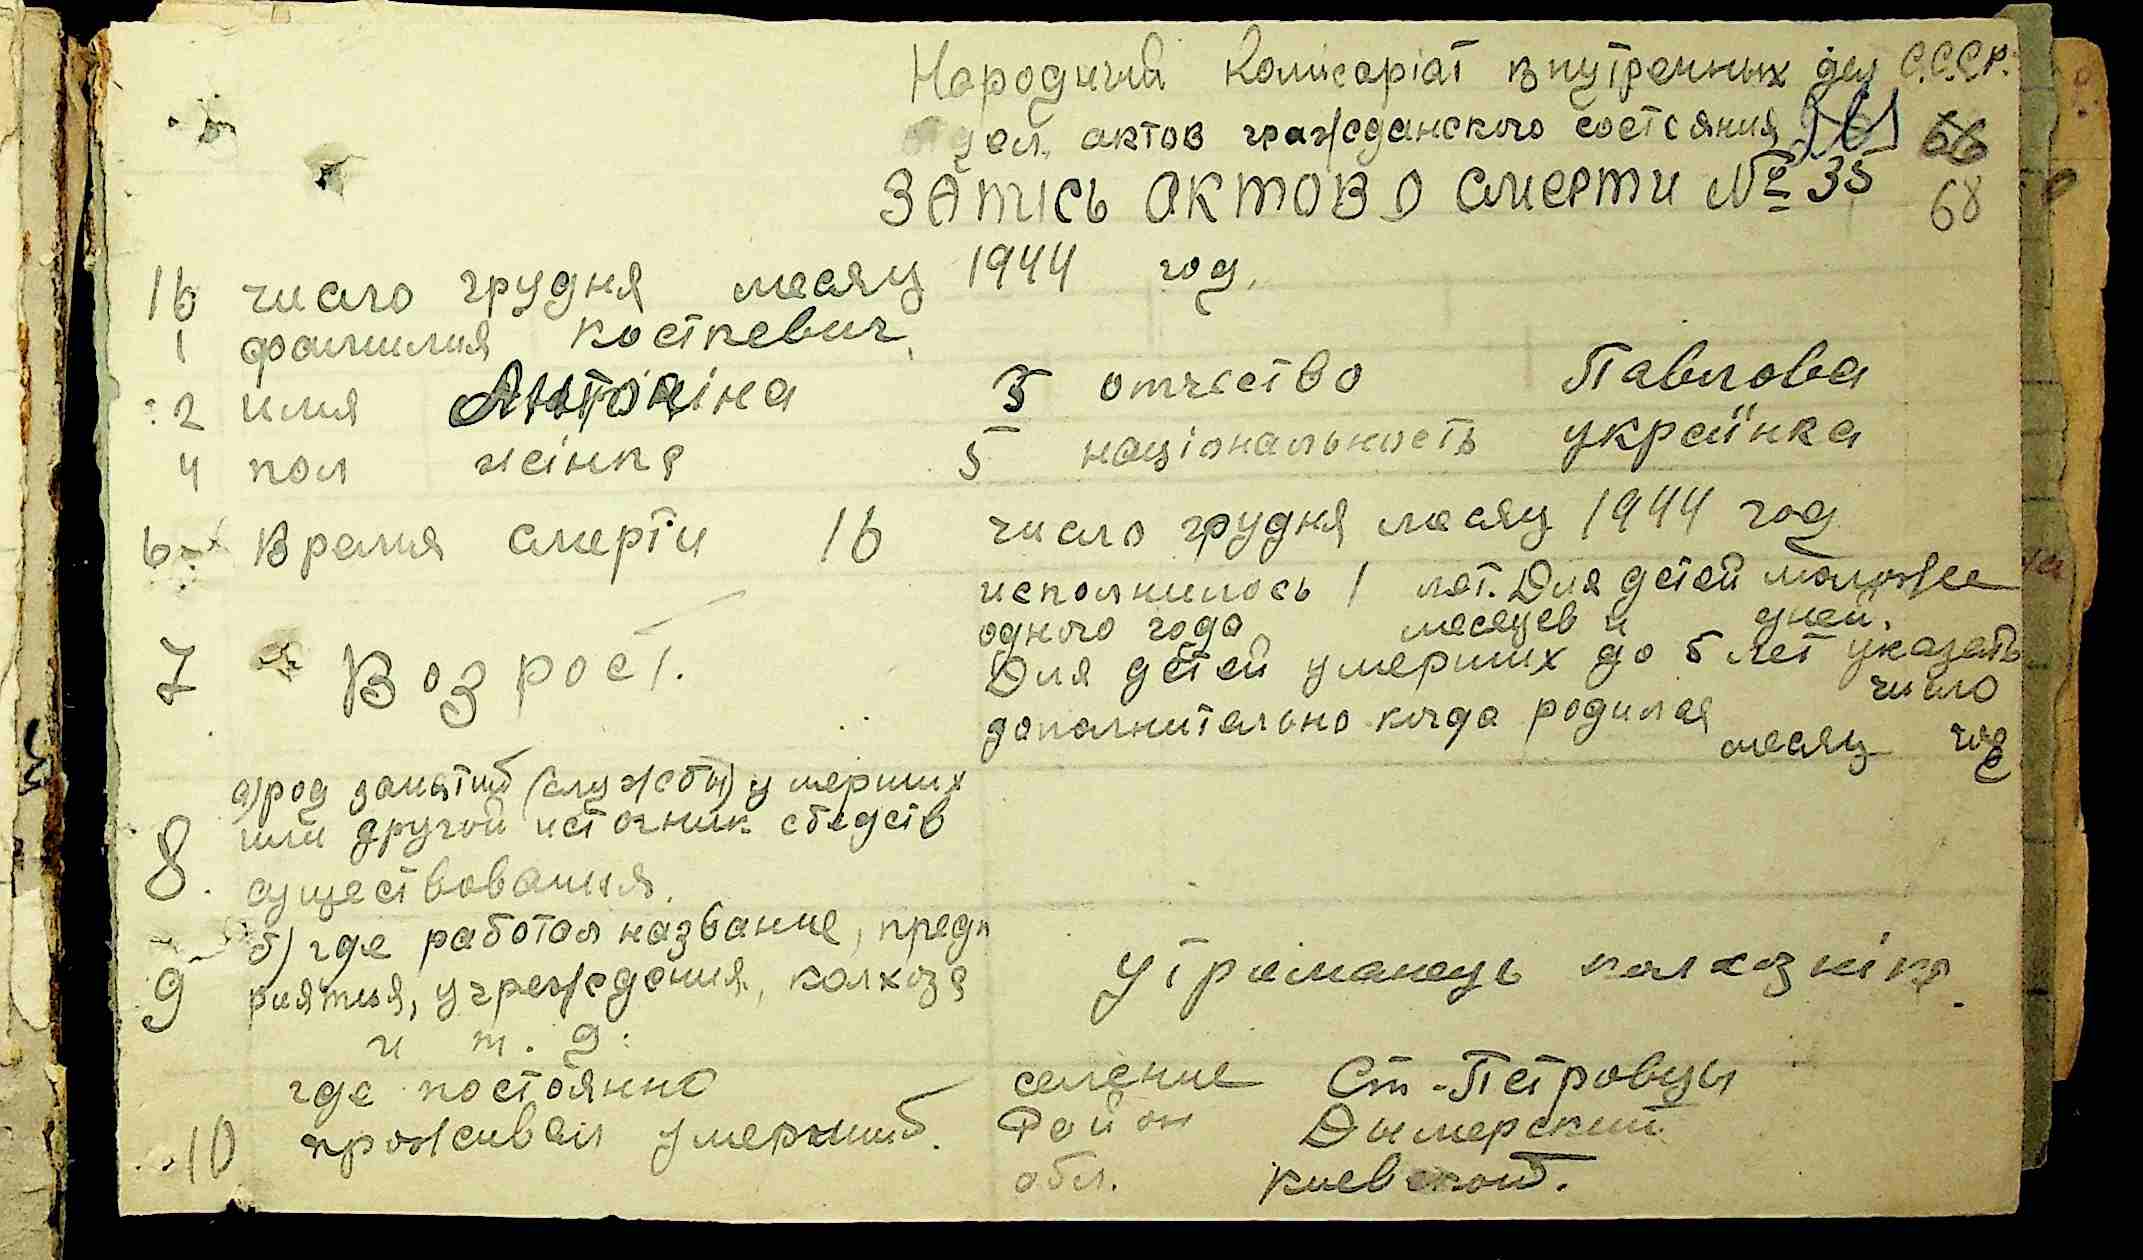 Народний Комісаріат внутренных дел С.С.С.Р.
отдел актов гражданского состояния 66
ЗАПІСЬ АКТОВ О СМЕРТИ № 35 68
16 число грудня месяц 1944 год.
1 фамилия Косткевич
2 имя Антоніна 3 отчество Павлова
4 пол жінка 5 національность українка
6 Время смерти 16 число грудня месяц 1944 год
исполнилось 1 лет. Для детей моложе
одного года месяцев и дней.
7 Возрост. Для детей умерших до 5 лет указать
число
дополнительно когда родился
месяц год
а) род занятий (службы) умерших
8. или другой источник средств
существования.
б) где работал название, предп
9 риятия, учреждения, колхоза утриманець колхозніка.
и т. д.
где постоянно селение Ст-Петровцы
10 проживал умерший. Район Дымерский
обл. Киевской.